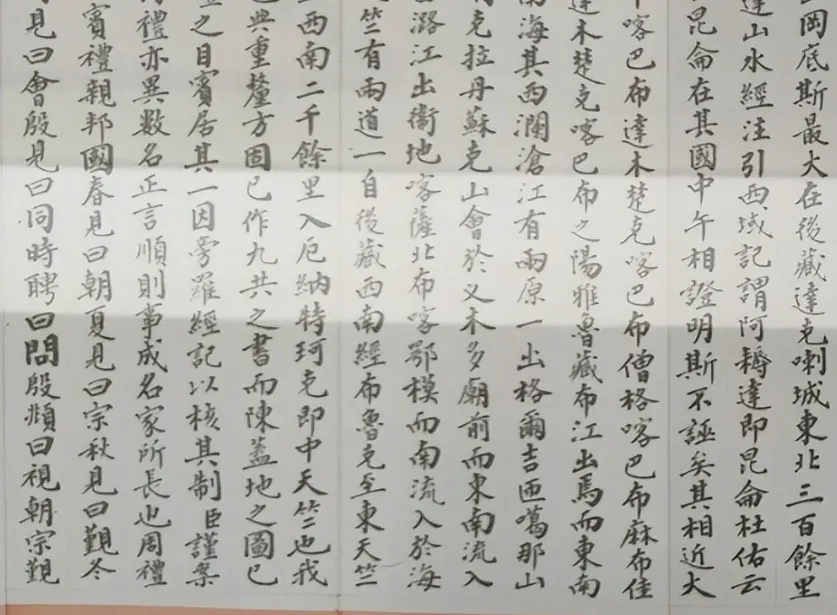 岡底斯最大在後藏達克喇城東北三百餘里
達山水經注引西域記謂阿耨達即昆侖杜佑云
昆侖在其國中午相證明斯不誣矣其相近大
喀巴布達木楚克喀巴布僧格喀巴布麻布佳
達木楚克喀巴布之陽雅魯藏布江出焉而東南
南海其西瀾滄江有兩原一出格爾吉匝噶那山
克拉丹蘇克山會於乂木多廟前而東南流入
潞江出衛地喀薩北布喀鄂模而南流入於海
竺有兩道一自後藏西南經布魯克至東天竺
西南二千餘里入厄納特珂克即中天竺也我
典重釐方固已作九共之書而陳蓋地之圖已
之目賓居其一因旁羅經記以核其制臣謹案
禮亦異數名正言順則事成名家所長也周禮
賓禮親邦國春見曰朝夏見曰宗秋見曰覲冬
見曰會殷見曰同時聘曰問殷頫曰視朝宗覲